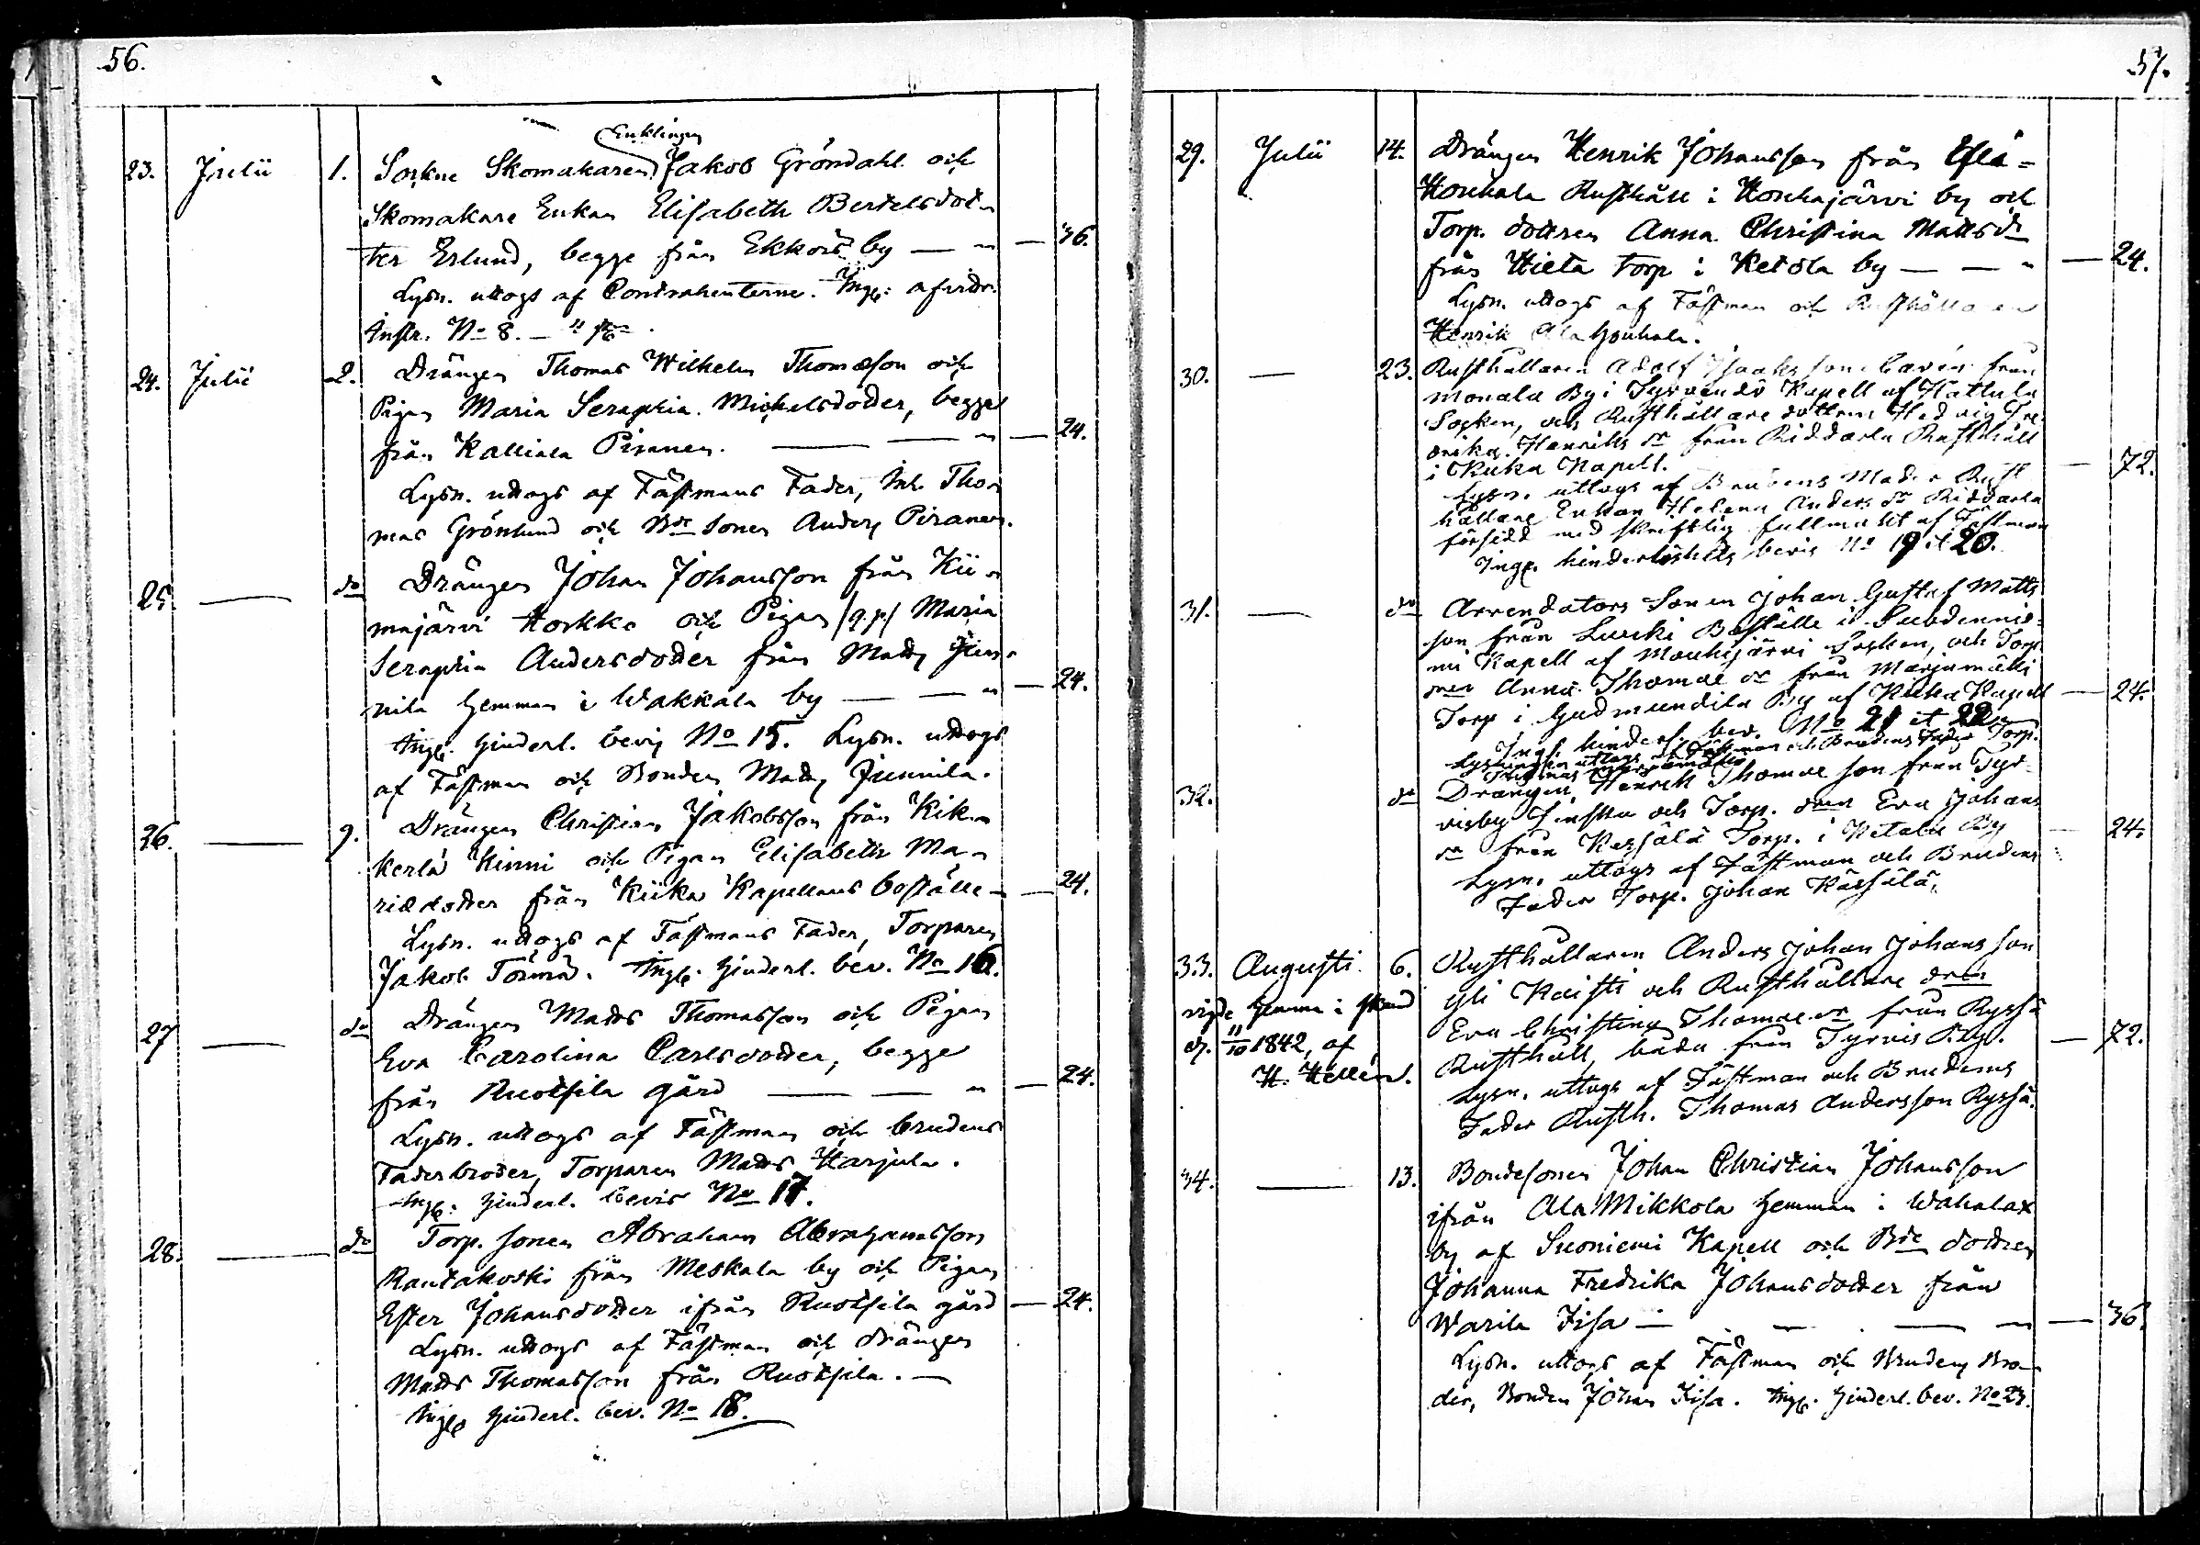 56.
23. Julii 1. Sockne Skomakaren Enklingen Jakob Gröndahl och
Skomakare Enkan Elisabeth Bertelsdot-
ter Erlund, begge från Ekkois by — " — 36.
Lysn. uttogs af Contrahenterne. Ingk: afvittr.
instr. No 8.
24. Julii 2. Drängen Thomas Wilhelm Thomasson och
Pigan Maria Seraphia Michelsdotter, begge
från Kalliala Piranen. — — " — 24.
Lysn. uttogs af Fästmans Fader, Inh. Tho-
mas Grönlund och Bde Sonen Anders Piranen.
25. — do Drängen Johan Johansson från Kii-
majärvi Horkko och Pigan /q.p/ Maria
Seraphia Andersdotter från Matts Jun-
nila hemman i Wakkala by — — " — 24.
Ingk. hinderl. bevis No 15. Lysn. uttogs
af Fästman och Bonden Matts Junnila.
26. — 9. Drängen Christian Jakobsson från Kik-
kerlä Kinni och Pigan Elisabeth Ma-
riædotter från Kiika Kapellans boställe — 24.
Lysn. uttogs af Fästmans Fader, Torparen
Jakob Törmä. Ingk. hinderl. bev. No 16.
27 — do Drängen Matts Thomasson och Pigan
Eva Carolina Carlsdotter, begge
från Ruotsila gård — — " — 24.
Lysn. uttogs af Fästman och brudens
Faderbroder, Torparen Matts Harjula.
Ingk. hinderl. bevis No 17.
28. — do Torp. sonen Abraham Abrahamsson
Rautakoski från Meskala by och Pigan
Ester Johansdotter ifrån Ruotsila gård — 24.
Lysn. uttogs af Fästman och drängen
Matts Thomasson från Ruotsila. —
Ingk hinderl. bev. No 18.
57.
29. Julii 14. Drängen Henrik Johansson från
Houhala Rusthåll i Houhajärvi by och
Torp. dottren Anna Christina Mattsdr
från Hieta torp i Ketola by — — " — 24.
Lysn. uttogs af Fästman och Rusthålla en
Henrik Ala Houhala.
30. — 23. Rusthållaren Adolf Isaaksson Cavén från
monala By i Tyrvändö Kapell af Hattula
Socken, och Rusthållare dottren Hedvig Fre-
drika Henriks dr från Riddarla Rusthåll
i Kiika Kapell. — 72.
Lysn. uttogs af Brudens Moder Rust
hållare Enkan Helena Anders dr Riddarla
försedd med skriftlig fullmakt af Fästman
Ingk. hinderlöshets bevis No 19 et 20.
31. — do Arrendators Sonen Johan Gustaf Matts
son från Luoki Boställe i Suodennie-
mi Kapell af Mouhijärvi Socken, och Torp
dren Anna Thomæ dr från Marjamäki
Torp i Gudmundila By af Kiika Kapell — 24.
Ingk. hinderl. bev. No 21 et 22.
Lysningen uttogs af Fästman och Brudens Fader Torp.
Thomas Marjamäki
32. do Drängen Henrik Thomæ son från Tyr-
visby Finska och Torp. dren Eva Johans
dr från Kärsälä Torp. i Ketala By — 24.
Lysn. uttogs af Fästman och Brudens
Fader Torp. Johan Kärsälä.
33. Augusti. 6. Rusthållaren Anders Johan Johansson
yli Kaisti och Rusthållare dren
vigde hemma i
Eva Christina Thomæ dr från Ryssä
d. 11/10 1842, af
Rusthåll, båda från Tyrvis By. — 72.
H. Hellén.
Lysn. uttogs af Fästman och Brudens
Fader Rusth. Thomas Andersson Ryssä.
34. — 13. Bondesonen Johan Christian Johansson
ifrån Ala Mikkola hemman i Wahalax
by af Suoniemi Kapell och Bde dottren
Johanna Fredrika Johansdotter från
Warila Iisa — — — " — 36.
Lysn. uttogs af Fästman och Brudens Bro-
der, Bonden Johan Iisa. Ingk. hinderl. bev. No 23.